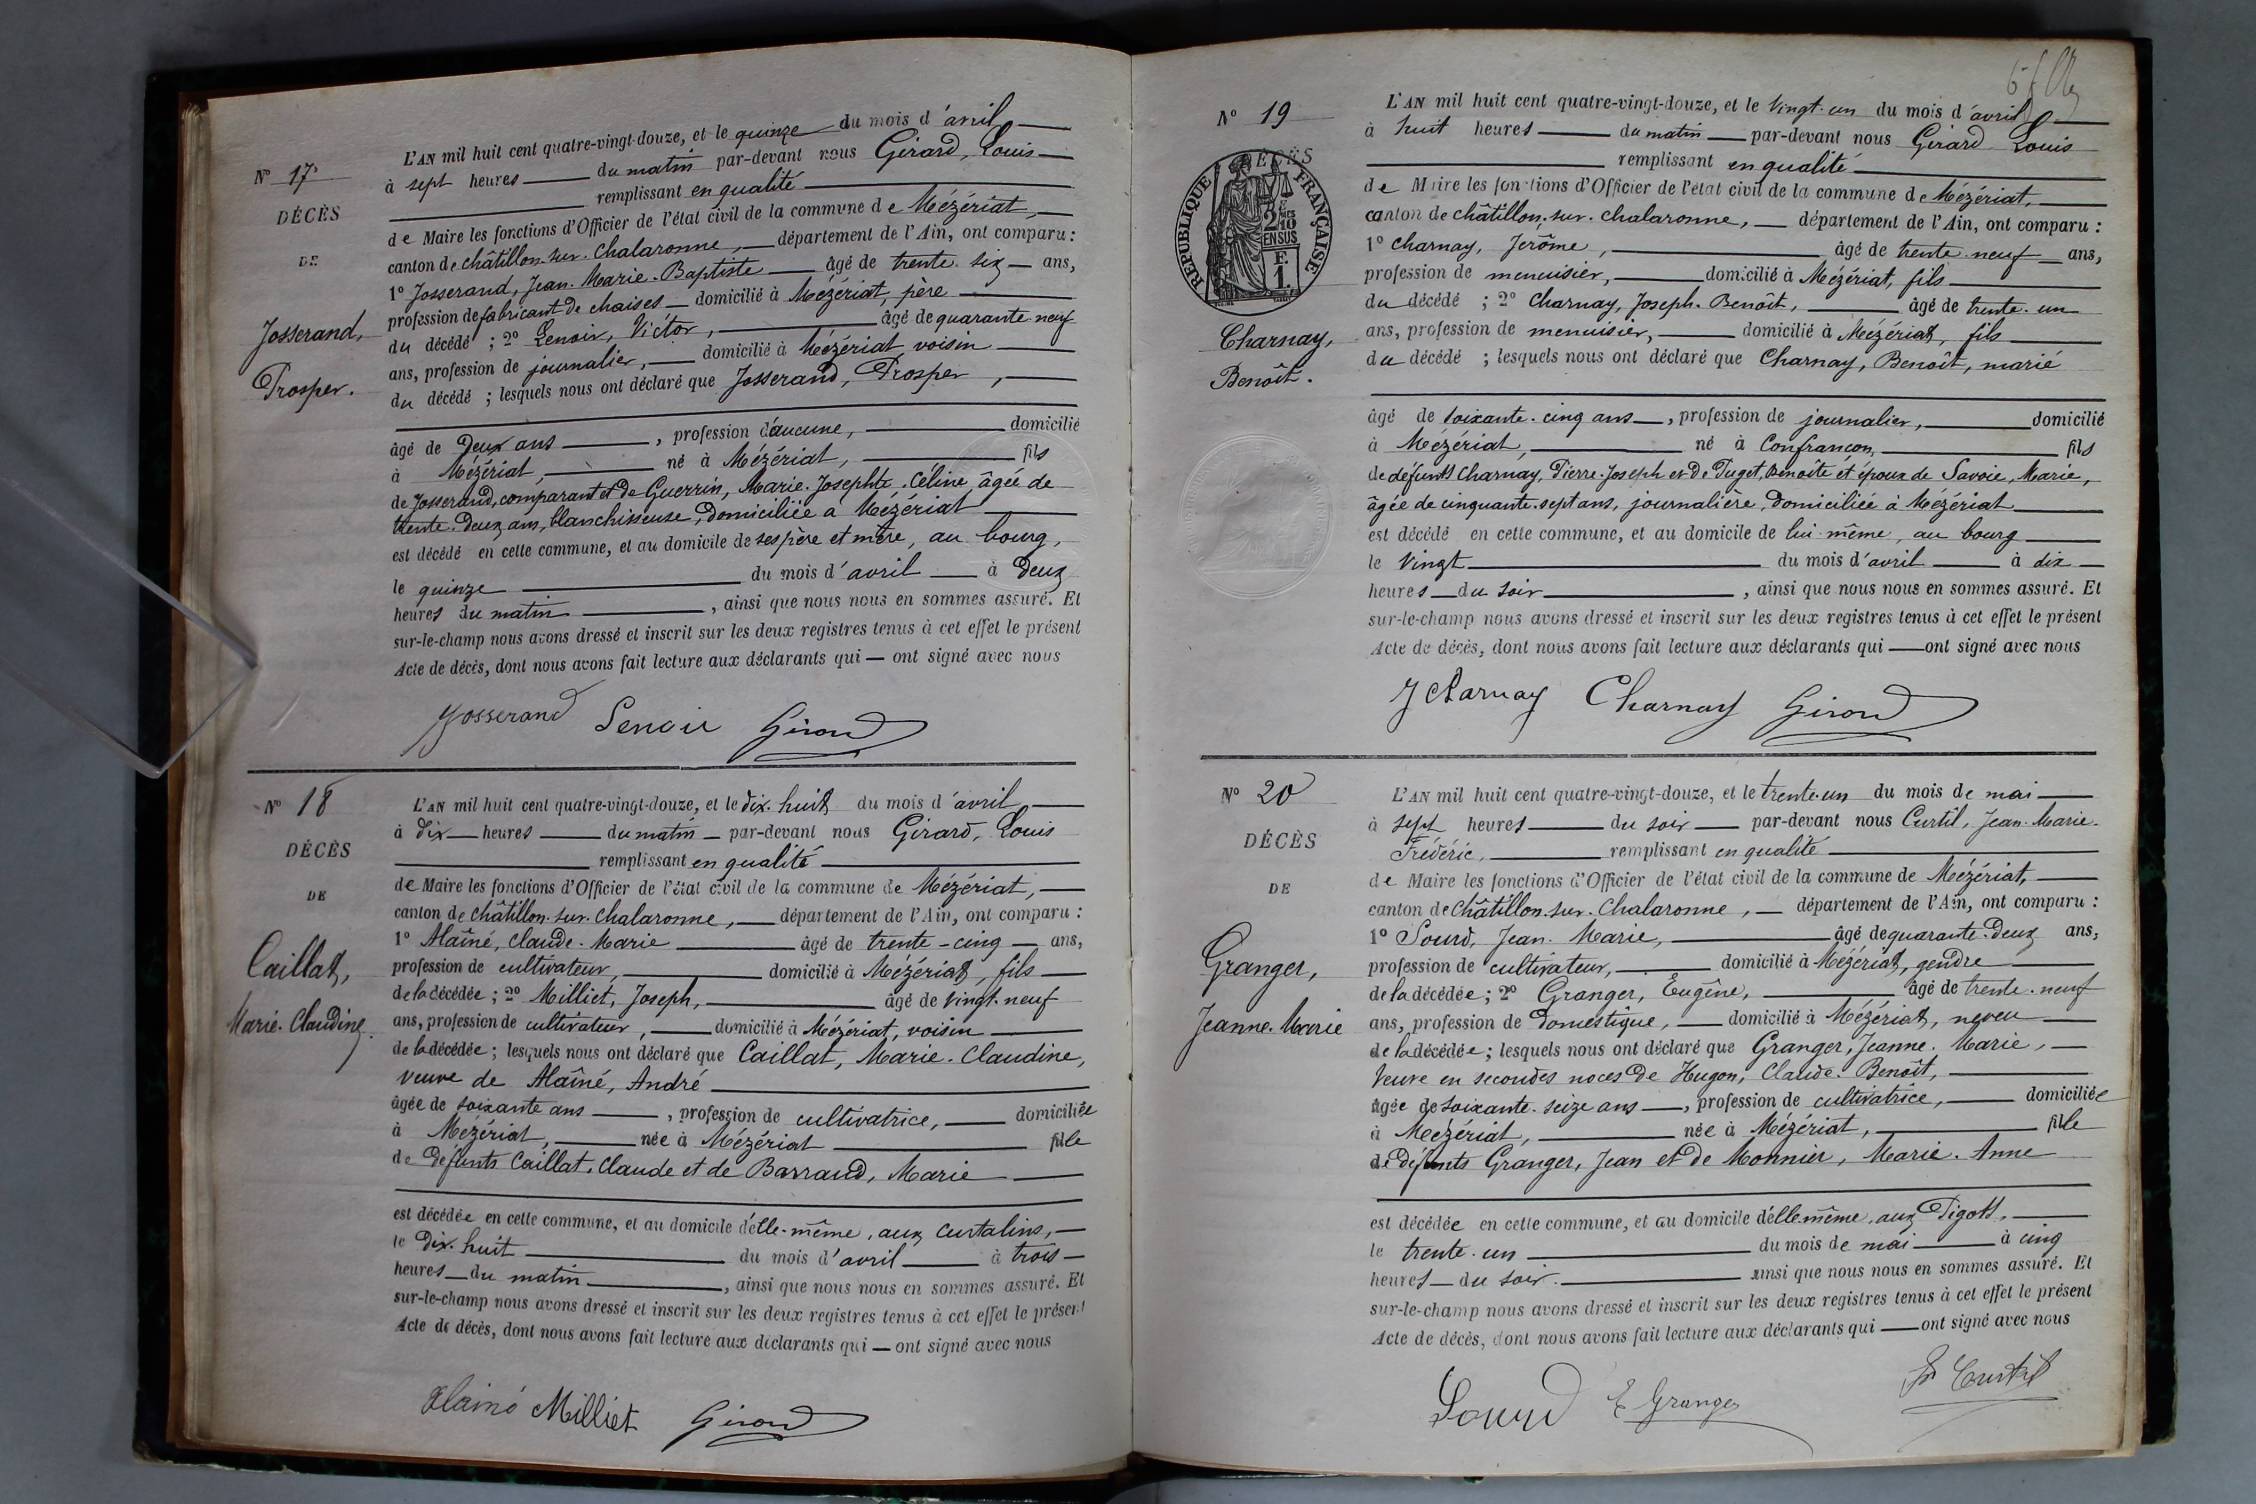 Nº 17
DÉCÈS
DE
Josserand,
Prosper.
L'AN mil huit cent quatre-vingt-douze, et le quinze du mois d'avril
à sept heures du matin par-devant nous Girard, Louis
remplissant en qualité
de Maire les fonctions d'Officier de l'état civil de la commune de Mézériat,
canton de Châtillon-sur-Chalaronne, département de l'Ain, ont comparu :
1º Josserand, Jean-Marie-Baptiste âgé de trente-six ans,
profession de fabricant de chaises domicilié à Mézériat, père
du décédé ; 2º Lenoir, Victor, âgé de quarante-neuf
ans, profession de journalier, domicilié à Mézériat, voisin
du décédé ; lesquels nous ont déclaré que Josserand, Prosper,
âgé de Deux ans, profession d'aucune, domicilié
à Mézériat, né à Mézériat, fils
de Josserand, comparant et de Guerrin, Marie-Josephte-Céline, âgée de
trente-Deux ans, blanchisseuse, Domiciliée à Mézériat
est décédé en cette commune, et au domicile de ses père et mère, au bourg,
le quinze du mois d'avril à Deux
heures du matin, ainsi que nous nous en sommes assuré. Et
sur-le-champ nous avons dressé et inscrit sur les deux registres tenus à cet effet le présent
Acte de décès, dont nous avons fait lecture aux déclarants qui — ont signé avec nous
Josserand Lenoir Girard
Nº 18
DÉCÈS
DE
Caillat,
Marie-Claudine.
L'AN mil huit cent quatre-vingt-douze, et le dix-huit du mois d'avril
à dix heures du matin par-devant nous Girard, Louis
remplissant en qualité
de Maire les fonctions d'Officier de l'état civil de la commune de Mézériat,
canton de Châtillon-sur-Chalaronne, département de l'Ain, ont comparu :
1º Alaîné, Claude-Marie âgé de trente-cinq ans,
profession de cultivateur, domicilié à Mézériat, fils
de la décédée ; 2º Milliet, Joseph, âgé de vingt-neuf
ans, profession de cultivateur, domicilié à Mézériat, voisin
de la décédée ; lesquels nous ont déclaré que Caillat, Marie-Claudine,
veuve de Alaîné, André
âgée de soixante ans, profession de cultivatrice, domiciliée
à Mézériat, née à Mézériat fille
de Défunts Caillat, Claude et de Barraud, Marie
est décédée en cette commune, et au domicile d'elle-même, aux Curtalins,
le Dix-huit du mois d'avril à trois
heures du matin, ainsi que nous nous en sommes assuré. Et
sur-le-champ nous avons dressé et inscrit sur les deux registres tenus à cet effet le présent
Acte de décès, dont nous avons fait lecture aux déclarants qui — ont signé avec nous
Alainé Milliet Girard
Nº 19
DÉCÈS
RÉPUBLIQUE FRANÇAISE
2/10 EN SUS
F. 1.
Charnay,
Benoît.
L'AN mil huit cent quatre-vingt-douze, et le vingt-un du mois d'avril
à huit heures du matin par-devant nous Girard Louis
remplissant en qualité
de Maire les fonctions d'Officier de l'état civil de la commune de Mézériat,
canton de Châtillon-sur-Chalaronne, département de l'Ain, ont comparu :
1º Charnay, Jérôme, âgé de trente-neuf ans,
profession de menuisier, domicilié à Mézériat, fils
du décédé ; 2º Charnay, Joseph-Benoît, âgé de trente-un
ans, profession de menuisier, domicilié à Mézériat, fils
du décédé ; lesquels nous ont déclaré que Charnay, Benoît, marié
âgé de soixante-cinq ans, profession de journalier, domicilié
à Mézériat, né à Confrançon, fils
de défunts Charnay, Pierre-Joseph et De Puget, Benoîte et époux de Savoie, Marie,
âgée de cinquante-sept ans, journalière, Domiciliée à Mézériat
est décédé en cette commune, et au domicile de lui-même, au bourg
le vingt du mois d'avril à dix
heures du soir, ainsi que nous nous en sommes assuré. Et
sur-le-champ nous avons dressé et inscrit sur les deux registres tenus à cet effet le présent
Acte de décès, dont nous avons fait lecture aux déclarants qui — ont signé avec nous
J Charnay Charnay Girard
Nº 20
DÉCÈS
DE
Granger,
Jeanne-Marie
L'AN mil huit cent quatre-vingt-douze, et le trente-un du mois de mai
à sept heures du soir par-devant nous Curtil, Jean-Marie-
Frédéric, remplissant en qualité
de Maire les fonctions d'Officier de l'état civil de la commune de Mézériat,
canton de Châtillon-sur-Chalaronne, département de l'Ain, ont comparu :
1º Sourd, Jean-Marie, âgé de quarante-Deux ans,
profession de cultivateur, domicilié à Mézériat, gendre
de la décédée ; 2º Granger, Eugène, âgé de trente-neuf
ans, profession de Domestique, domicilié à Mézériat, neveu
de la décédée ; lesquels nous ont déclaré que Granger, Jeanne-Marie,
Veuve en secondes noces De Hugon, Claude-Benoît,
âgée de soixante-seize ans, profession de cultivatrice, domiciliée
à Mézériat, née à Mézériat, fille
de Défunts Granger, Jean et De Monnier, Marie-Anne
est décédée en cette commune, et au domicile d'elle même, aux Pigots,
le trente-un du mois de mai à cinq
heures du soir. ainsi que nous nous en sommes assuré. Et
sur-le-champ nous avons dressé et inscrit sur les deux registres tenus à cet effet le présent
Acte de décès, dont nous avons fait lecture aux déclarants qui — ont signé avec nous
Sourd E Granger Curtil